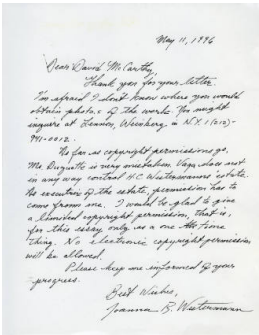 May 11, 1996
Dear David McCarthy,
Thank you for your letter.
I'm afraid I don't know where you would
obtain photos of the works. You might
inquire at Lennon, Weinberg in N.Y. 1(212)-
941-0012.
As far as copyright permissions go,
Ms Duquette is very mistaken. Vaga does not
in any way control H.C. Westermann's estate.
As executrix of the estate, permission has to
come from me. I would be glad to give
a limited copyright permission, that is,
for this essay only as a one time
thing. No electronic copyright permission
will be allowed.
Please keep me informed of your
progress.
Best Wishes,
Joanna B. Westermann